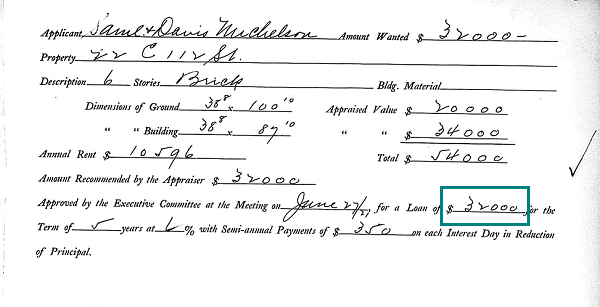 Applicant, Saml & Davis Michelson Amount Wanted $ 32000-
Property 22 E 112 St.
Description 6 Stories Brick Bldg. Material
Dimensions of Ground 38⁸ x 100'¹⁰ Appraised Value $ 20000
" " Building 38⁸ x 87'¹⁰ " " $ 34000
Annual Rent $ 10596 Total $ 54000
Amount Recommended by the Appraiser $ 32000
Approved by the Executive Committee at the Meeting on June 27/27 for a Loan of $ 32000 for the
Term of 5 years at 6 % with Semi-annual Payments of $ 350 on each Interest Day in Reduction
of Principal.